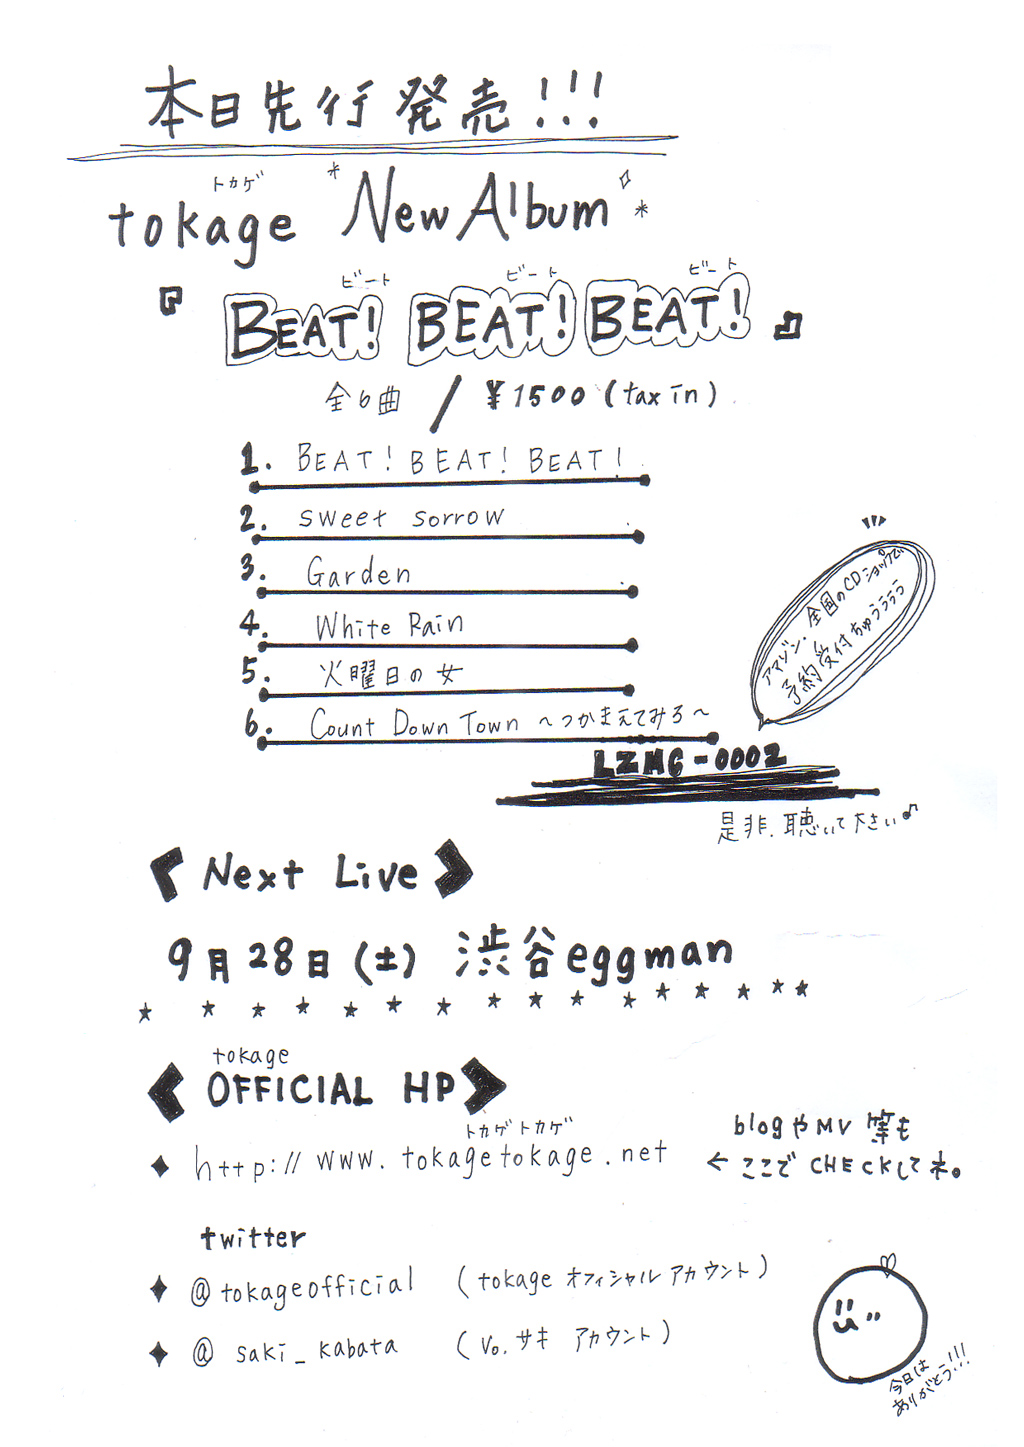 本日先行発売!!!
トカゲ
tokage New Album
ビート ビート ビート
『BEAT! BEAT! BEAT!』
全6曲 / ¥1500 (tax in)
1. BEAT! BEAT! BEAT!
2. sweet sorrow
3. Garden
4. White Rain
5. 火曜日の女
6. Count Down Town 〜つかまえてみろ〜
アマゾン・全国のCDショップで
予約受付ちゅうぅぅぅ
LZMC-0002
是非、聴いて下さい♪
《Next Live》
9月28日(土) 渋谷eggman
tokage
《OFFICIAL HP》
トカゲトカゲ
http://www.tokagetokage.net
blogやMV等も
←ここでCHECKしてネ。
twitter
@tokageofficial (tokage オフィシャルアカウント)
@saki_kabata (Vo.サキ アカウント)
今日は
ありがとう!!!